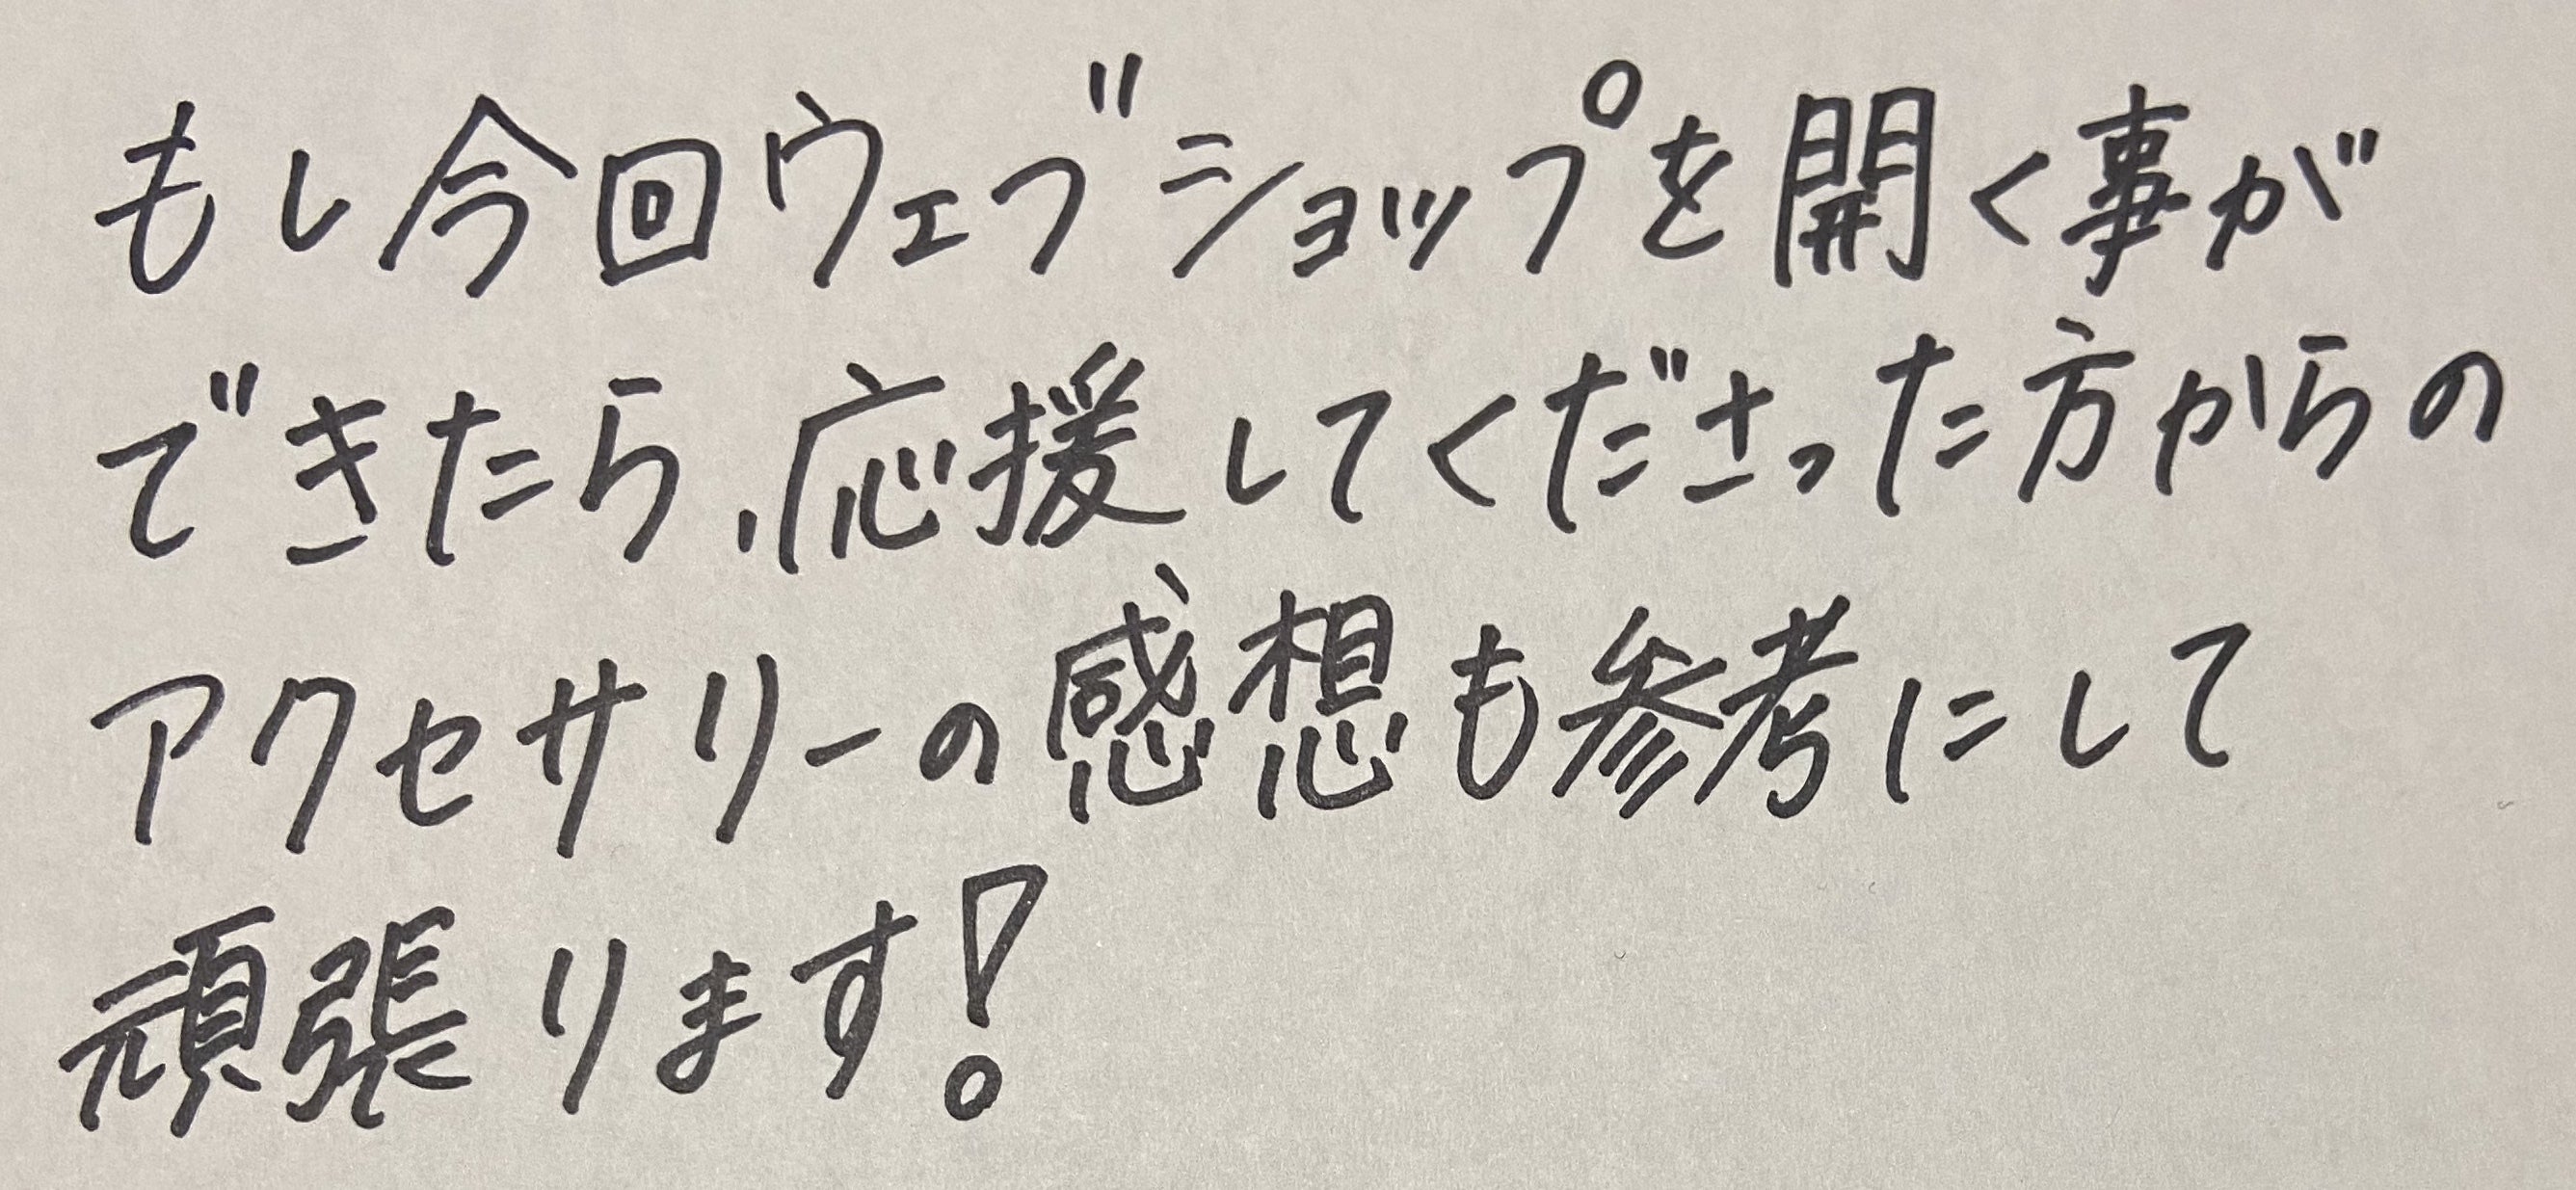 もし今回ウェブショップを開く事が
できたら、応援してくださった方からの
アクセサリーの感想も参考にして
頑張ります!